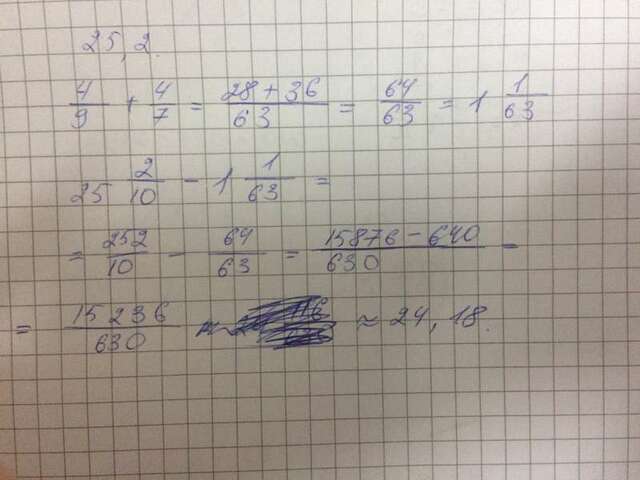 25,2.
4/9 + 4/7 = 28 + 36/63 = 64/63 = 1 1/63
25 2/10 - 1 1/63 =
= 252/10 - 64/63 = 15876 - 640/630 -
= 15236/630 ≈ 24,18.